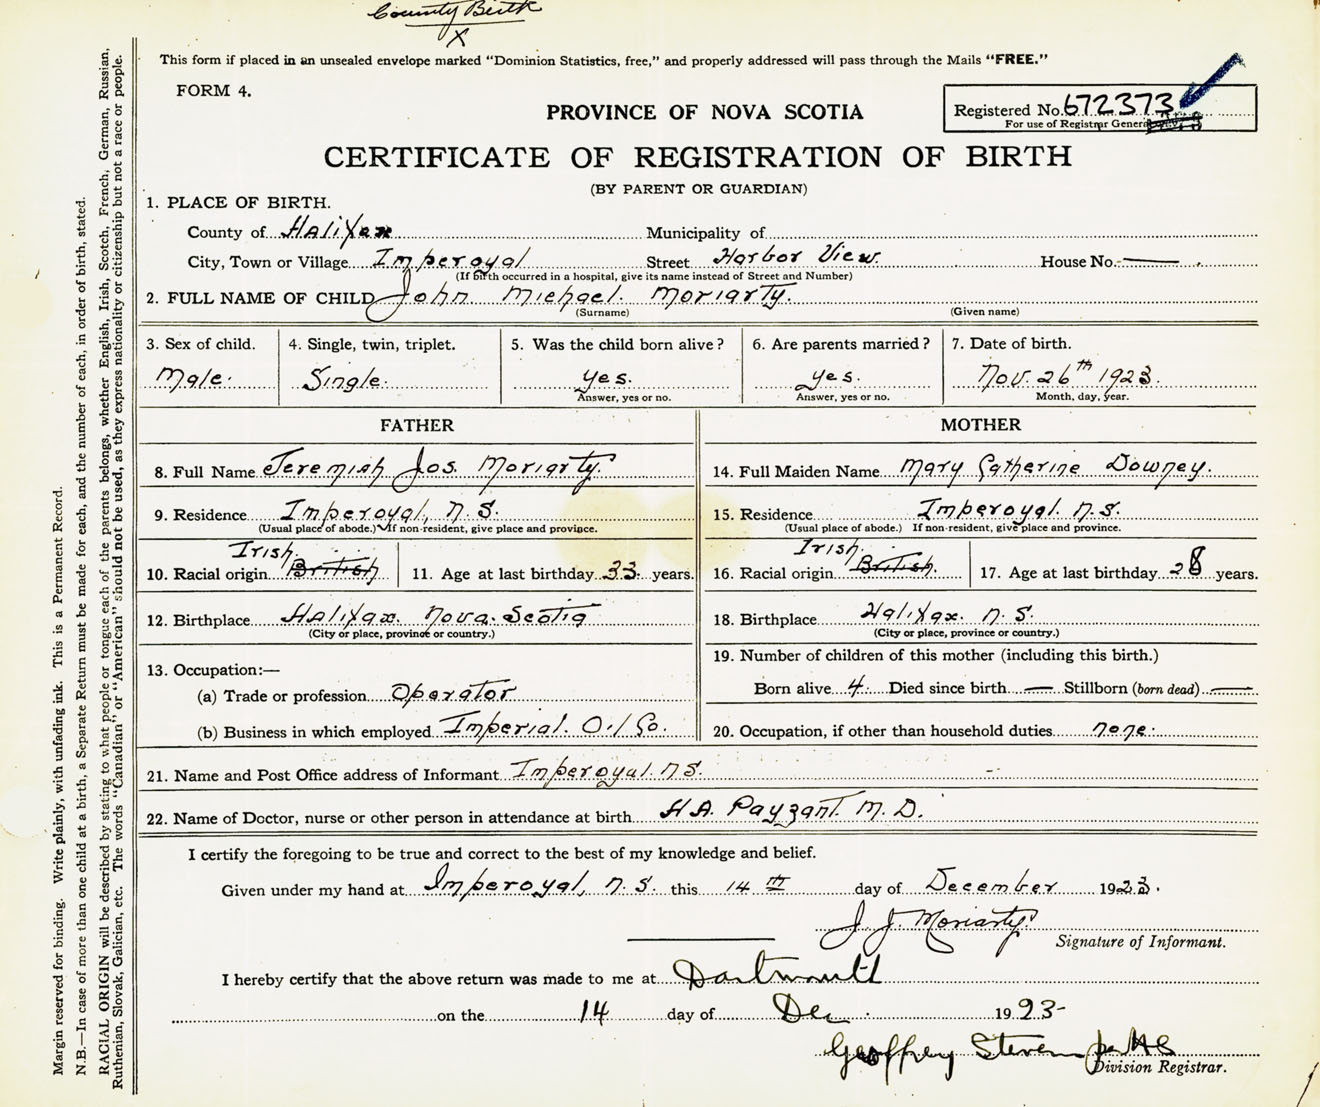 County Birth
X
This form if placed in an unsealed envelope marked "Dominion Statistics, free," and properly addressed will pass through the Mails "FREE."
FORM 4.
PROVINCE OF NOVA SCOTIA
Registered No. 672373
For use of Registrar General
CERTIFICATE OF REGISTRATION OF BIRTH
(BY PARENT OR GUARDIAN)
1. PLACE OF BIRTH.
County of Halifax Municipality of
City, Town or Village Imperoyal Street Harbor View. House No. —
(If birth occurred in a hospital, give its name instead of Street and Number)
2. FULL NAME OF CHILD John Michael. Moriarty.
(Surname) (Given name)
3. Sex of child. 4. Single, twin, triplet. 5. Was the child born alive? 6. Are parents married? 7. Date of birth.
Male. Single. yes. yes. Nov. 26th 1923.
Answer, yes or no. Answer, yes or no. Month, day, year.
FATHER MOTHER
8. Full Name Jeremiah Jos. Moriarty. 14. Full Maiden Name Mary Catherine Downey.
9. Residence Imperoyal, N.S. 15. Residence Imperoyal. N.S.
(Usual place of abode.) If non-resident, give place and province. (Usual place of abode.) If non-resident, give place and province.
Irish. Irish.
10. Racial origin British 11. Age at last birthday 33. years. 16. Racial origin British. 17. Age at last birthday 28 years.
12. Birthplace Halifax. Nova. Scotia 18. Birthplace Halifax. N.S.
(City or place, province or country.) (City or place, province or country.)
13. Occupation:— 19. Number of children of this mother (including this birth.)
(a) Trade or profession Operator Born alive 4. Died since birth — Stillborn (born dead) —
(b) Business in which employed Imperial. Oil Co. 20. Occupation, if other than household duties none.
21. Name and Post Office address of Informant Imperoyal. N.S.
22. Name of Doctor, nurse or other person in attendance at birth H.A. Payzant. M.D.
I certify the foregoing to be true and correct to the best of my knowledge and belief.
Given under my hand at Imperoyal, N.S. this 14th day of December 1923.
J. J. Moriarty
Signature of Informant.
I hereby certify that the above return was made to me at Dartmouth
on the 14 day of Dec. 1923-
Geoffrey Stevens per
Division Registrar.
Margin reserved for binding. Write plainly, with unfading ink. This is a Permanent Record.
N.B.—In case of more than one child at a birth, a Separate Return must be made for each, and the number of each, in order of birth, stated.
RACIAL ORIGIN will be described by stating to what people or tongue each of the parents belongs, whether English, Irish, Scotch, French, German, Russian,
Ruthenian, Slovak, Galician, etc. The words "Canadian" or "American" should not be used, as they express nationality or citizenship but not a race or people.